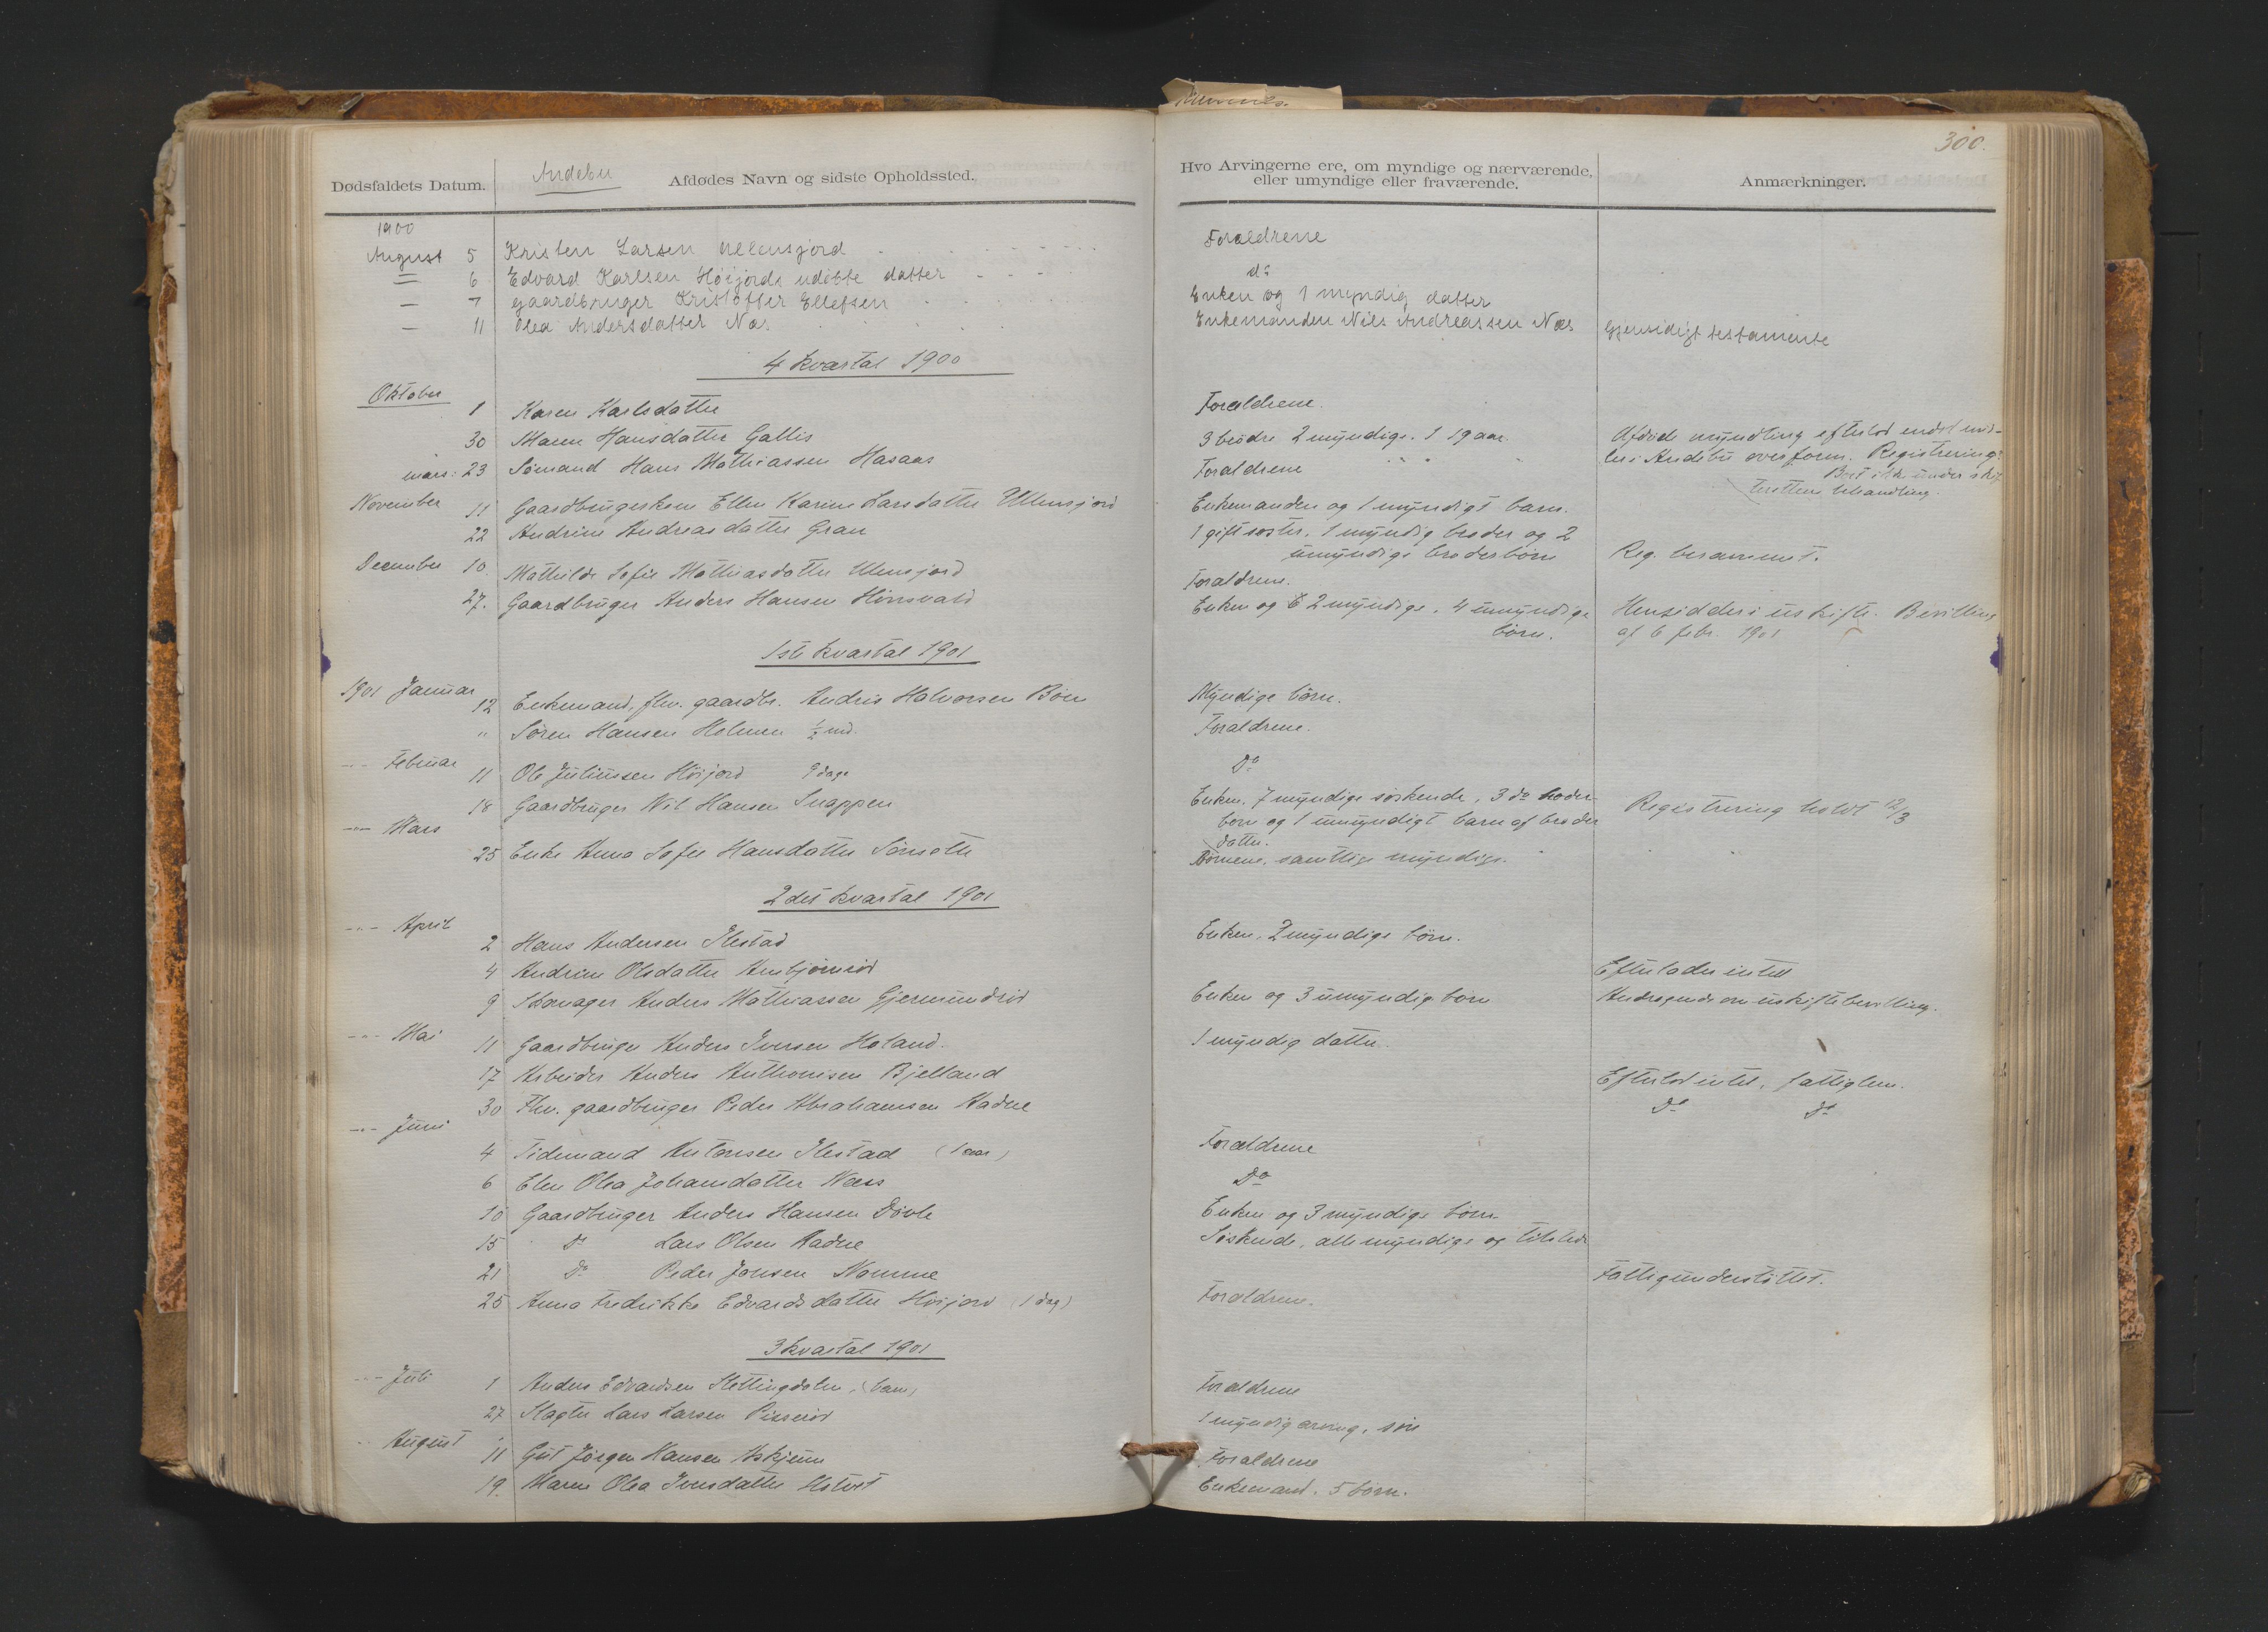 300.
Dødsfaldets Datum.
Andebu
Afdødes Navn og sidste Opholdssted.
Hvo Arvingerne ere, om myndige og nærværende,
eller umyndige eller fraværende.
Anmærkninger.
1900
August 5 Kristen Larsen Ullensjord Forældrene
— 6 Edvard Karlsen Höijords udöbte datter do
— 7 gaardbruger Kristoffer Ellefsen Enken og 1 myndig datter
— 11 Olea Andersdatter Næs Enkemanden Nils Andreassen Næs Gjensidigt testamente
4 kvartal 1900
Oktober
1 Karen Karlsdatter Forældrene.
30 Maren Hansdatter Gallis 3 brödre 2 myndige. 1 19 aar. Afdöde myndling efterlod endel mid-
mars: 23 Sömand Hans Mathiassen Hasaas Forældrene ler i Andebu overform. Registrering.
Boet ikke under skif
terettens behandling.
November 11 Gaardbrugerkone Ellen Karine Larsdatter Ullensjord Enkemanden og 1 myndigt barn.
22 Andrine Andreasdatter Gran 1 gift söster, 1 myndig broder og 2
umyndige broderbörn Reg. berammet.
December 10 Mathilde Sofie Mathiasdatter Ulensjord Forældrene.
27. Gaardbruger Anders Hansen Hönsvald Enken og 2 myndige. 4 umyndige Hensidder i uskifte. Bevilling
börn. af 6 febr. 1901
1ste kvartal 1901
1901 Januar
12 Enkemand, fhv. gaardbr. Andris Halvorsen Böen Myndige börn.
" Sören Hansen Holmen ½ md. Forældrene.
-"- Februar
11 Ole Juliussen Höijord 9 dage Do
18 Gaardbruger Nil Hansen Snappen Enken. 7 myndige söskende, 3 do broder- Registrering holdt 12/3
-"- Mars börn og 1 umyndigt barn af broder
datter.
25 Enke Anna Sofie Hansdatter Sörsætre Börnene, samtlige myndige.
2det kvartal 1901
-"- April
2 Hans Andersen Ilestad Enken, 2 myndige börn.
4 Andrine Olsdatter Arnbjörnröd Efterlader intet
9 Skomager Anders Mathiassen Gjermundröd Enken og 3 umyndige börn Andragende om uskiftebevilling.
-"- Mai
11 Gaardbruger Anders Iversen Haland. 1 myndig datter.
17 Arbeider Anders Anthonisen Bjelland Efterlod intet, fattiglem.
30 Fhv. gaardbruger Peder Abrahamsen Kadne Do Do
-"- Juni
4 Tidemand Antonsen Ilestad (1 aar) Forældrene
6 Elen Olea Johansdatter Næss Do
10 Gaardbruger Anders Hansen Dövle Enken og 3 myndige börn
15 Do Lars Olsen Kadne Söskende, alle myndige og tilstede
21 Do Peder Jonsen Nomme Fattigunderstöttet.
25 Anna Fredrikke Edvardsdatter Höijord (1 dag) Forældrene.
3 kvartal 1901
-"- Juli
1 Anders Edvardsen Slettingdalen. (barn) Forældrene
27 Slagter Lars Larsen 1 myndig arving, sön
August
11 Gut Jörgen Hansen Askjeum Forældrene
19. Maren Olea Iversdatter Enkemand. 5 börn.